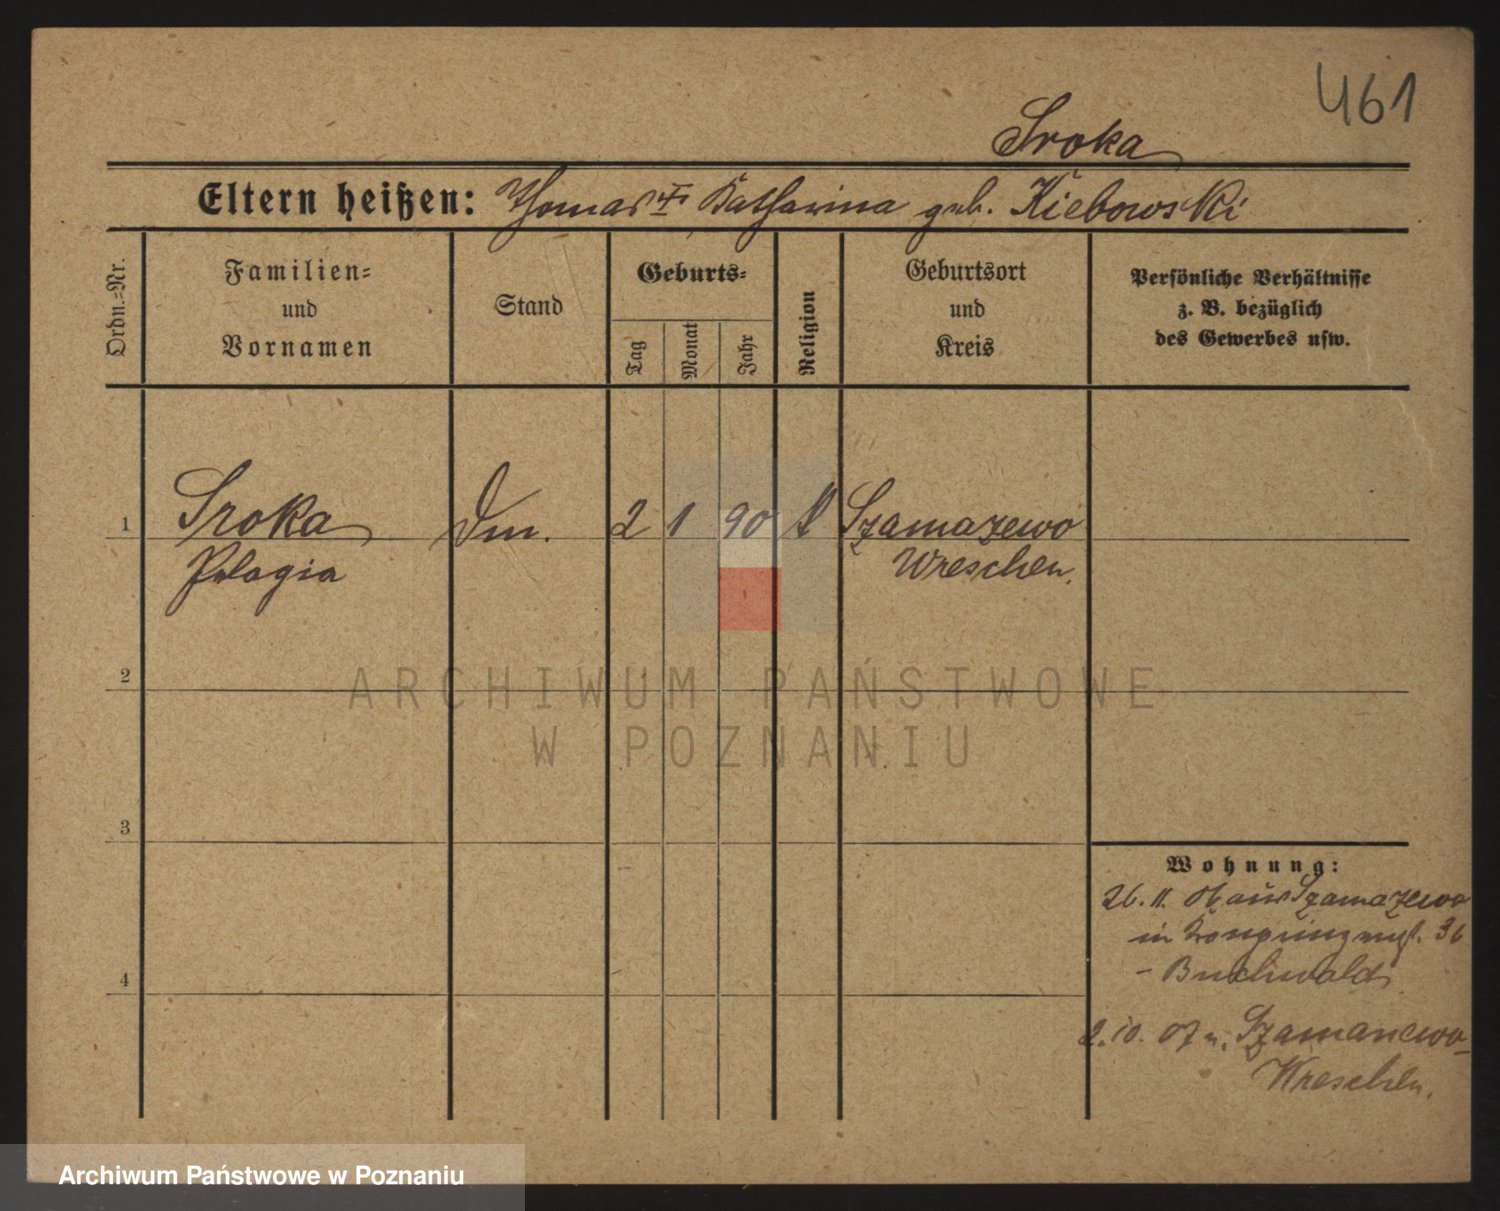 461
Sroka
Eltern heißen: Thomas u. Katharina geb. Kiebowski
Ordn.-Nr.
Familien-
und
Vornamen
Stand
Geburts-
Tag
Monat
Jahr
Religion
Geburtsort
und
Kreis
Persönliche Verhältnisse
z. B. bezüglich
des Gewerbes usw.
1 Sroka Dm. 2 1 90 Szamazewo
Pelagia Wreschen.
2
ARCHIWUM PAŃSTWOWE
W POZNANIU
3
Wohnung:
26. 11. 06 aus Szamazewo
in 36
- Buchwald
4
2. 10. 07 n. Szamanewo-
Wreschen.
Archiwum Państwowe w Poznaniu